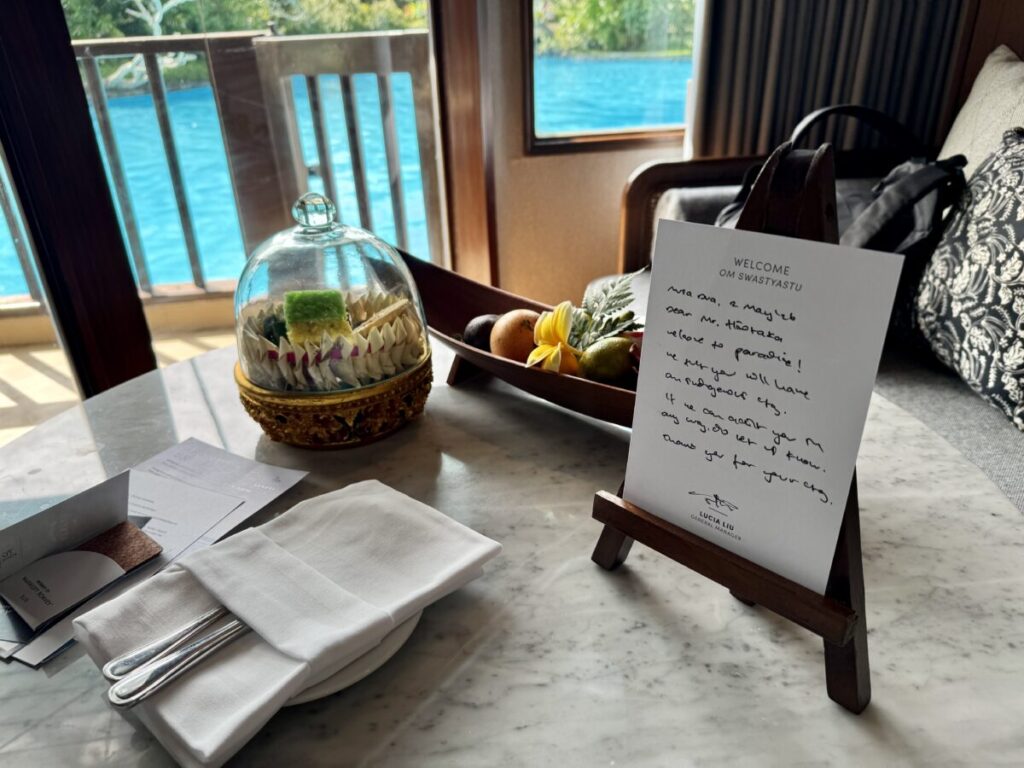 WELCOME
OM SWASTYASTU
Nusa Dua, 2 May
Dear Mr.
Welcome to paradise!
We trust you will have
an indigenous stay.
If we can assist you in
any way, do let us know.
Thank you for your stay.
LUCIA LIU
GENERAL MANAGER